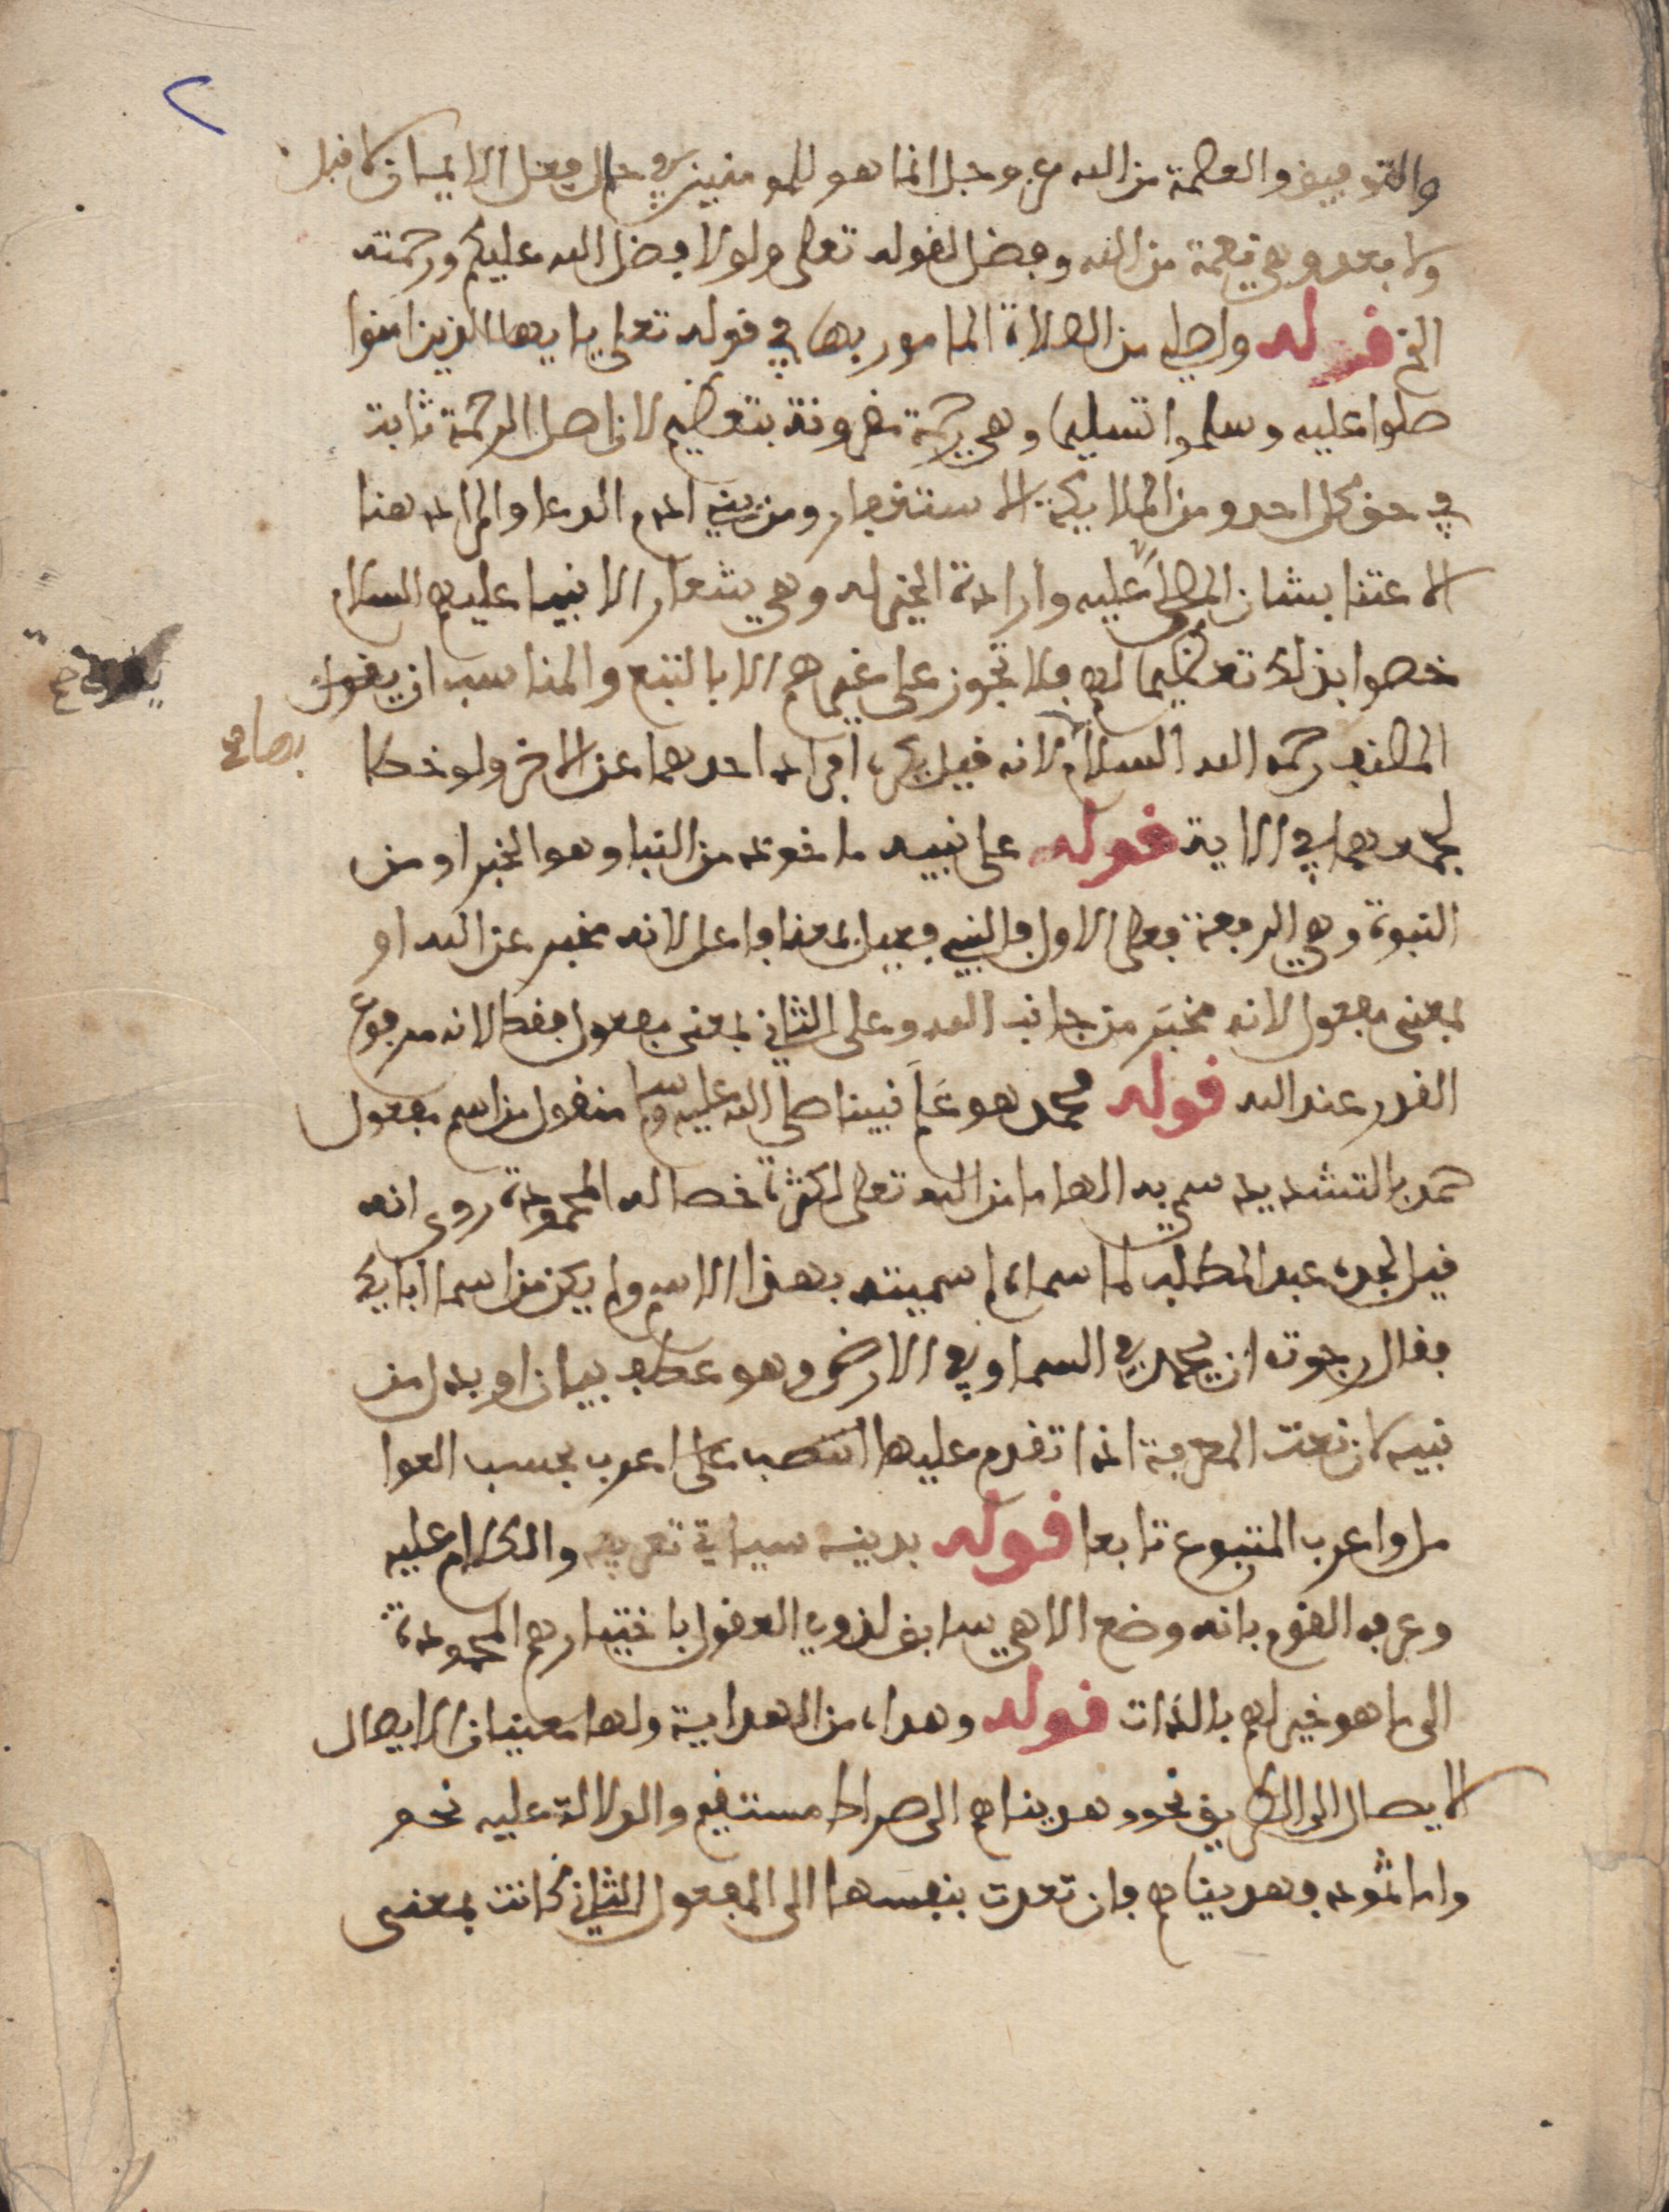 ٢
والتوفيق والعصمة من الله عز وجل انما هو للمومنين في حال فعل الايمان لا قبل
ولا بعد وهي نعمة من الله وفضل لقوله تعلى ولولا فضل الله عليكم ورحمته
الخ قوله واصلي من الصلاة المامور بها في قوله تعلى يايها الذين امنوا
صلوا عليه وسلموا تسليما وهي رحمة مقرونة بتعظيم لان اصل الرحمة ثابت
في حق كل احد ومن الملايكة الاستغفار ومن بني ادم الدعا والمراد هنا
الاعتنا بشان المصلى عليه وارادة الخير له وهي شعار الانبيا عليهم السلام
خصوا بذلك تعظيما لهم فلا تجوز على غيرهم الا بالتبع والمناسب ان يقول
المصنف رحمه الله السلام لانه قيل يكره افراد احدهما عن الاخر ولو خطا
لجمعهما في الاية قوله على نبيه ماخوذ من النبا وهو الخبر او من
النبوة وهي الرفعة فعلى الاول فالنبي فعيل بمعنا فاعل لانه مخبر عن الله او
بمعنى مفعول لانه مخبَر من جانب الله وعلى الثاني بمعنى مفعول فقط لانه مرفوع
القدر عند الله قوله محمد هو علم نبينا صلى الله عليه وسلم منقول من اسم مفعول
حمد بالتشديد سمي به الهاما من الله تعلى لكثرة خصاله المحمودة روي انه
قيل لجده عبد المطلب لما سماه لم سميته بهذا الاسم ولم يكن من اسما ابايك
فقال رجوت ان يحمد في السما وفي الارض وهو عطف بيان او بدل من
نبيه لان نعت المعرفة اذا تقدم عليها انتصب على اعرب بحسب العوا
مل واعرب المتبوع تابعا قوله بدينه سياتي تعريفه والكلام عليه
وعرفه القوم بانه وضع الاهي سابق لذوي العقول باختيارهم المحمودة
الى ما هو خير لهم بالذات قوله وهداه من الهداية ولها معنيان الايصال
الايصال الى الطريق نحو وهديناهم الى صراط مستقيم والدلالة عليه نحو
واما ثمود فهديناهم فان تعدت بنفسها الى المفعول الثاني كانت بمعنى